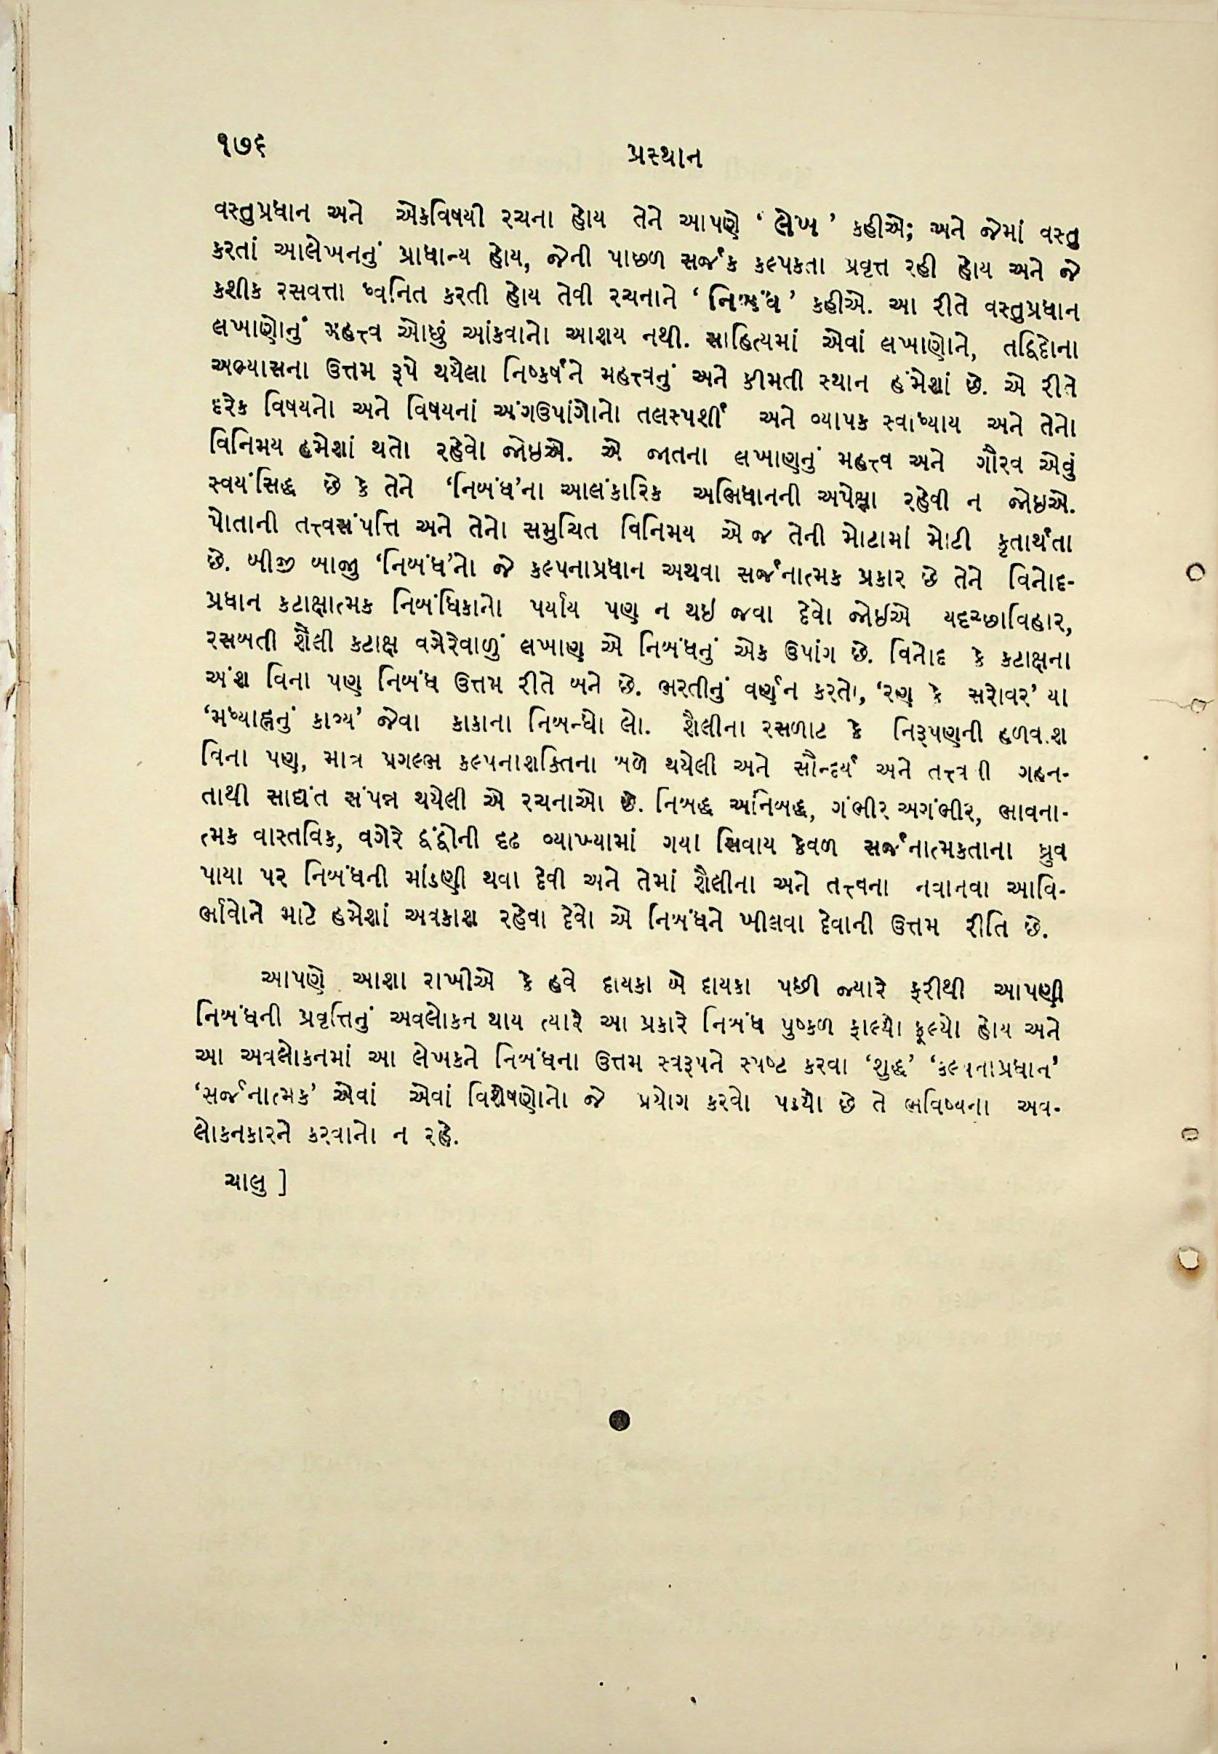 ૧૭૬
પ્રસ્થાન
વસ્તુપ્રધાન અને એકવિષયી રચના હોય તેને આપણે ‘લેખ’ કહીએ; અને જેમાં વસ્તુ
કરતાં આલેખનનું પ્રાધાન્ય હોય, જેની પાછળ સર્જક કલ્પકતા પ્રવૃત્ત રહી હોય અને જે
કશીક રસવત્તા ધ્વનિત કરતી હોય તેવી રચનાને ‘નિબંધ’ કહીએ. આ રીતે વસ્તુપ્રધાન
લખાણોનું મહત્ત્વ ઓછું આંકવાનો આશય નથી. સાહિત્યમાં એવાં લખાણોને, તદ્વિદોના
અભ્યાસના ઉત્તમ રૂપે થયેલા નિષ્કર્ષને મહત્ત્વનું અને કીમતી સ્થાન હંમેશાં છે. એ રીતે
દરેક વિષયનો અને વિષયનાં અંગઉપાંગોનો તલસ્પર્શી અને વ્યાપક સ્વાધ્યાય અને તેનો
વિનિમય હમેશાં થતો રહેવો જોઇએ. એ જાતના લખાણનું મહત્ત્વ અને ગૌરવ એવું
સ્વયંસિદ્ધ છે કે તેને ‘નિબંધ’ના આલંકારિક અભિધાનની અપેક્ષા રહેવી ન જોઇએ.
પોતાની તત્ત્વસંપત્તિ અને તેનો સમુચિત વિનિમય એ જ તેની મોટામાં મોટી કૃતાર્થતા
છે. બીજી બાજુ ‘નિબંધ’નો જે કલ્પનાપ્રધાન અથવા સર્જનાત્મક પ્રકાર છે તેને વિનોદ-
પ્રધાન કટાક્ષાત્મક નિબંધિકાનો પર્યાય પણ ન થઇ જવા દેવો જોઇએ યદચ્છાવિહાર,
રસબતી શૈલી કટાક્ષ વગેરેવાળું લખાણ એ નિબંધનું એક ઉપાંગ છે. વિનોદ કે કટાક્ષના
અંશ વિના પણ નિબંધ ઉત્તમ રીતે બને છે. ભરતીનું વર્ણન કરતો, ‘રણ કે સરોવર’ યા
‘મધ્યાહ્નનું કાવ્ય’ જેવા કાકાના નિબન્ધો લો. શૈલીના રસળાટ કે નિરૂપણની હળવાશ
વિના પણ, માત્ર પ્રગલ્ભ કલ્પનાશક્તિના બળે થયેલી અને સૌન્દર્ય અને તત્ત્વની ગહન-
તાથી સાદ્યંત સંપન્ન થયેલી એ રચનાઓ છે. નિબદ્ધ અનિબદ્ધ, ગંભીર અગંભીર, ભાવના-
ત્મક વાસ્તવિક, વગેરે દ્વંદ્વોની દૃઢ વ્યાખ્યામાં ગયા સિવાય કેવળ સર્જનાત્મકતાના ધ્રુવ
પાયા પર નિબંધની માંડણી થવા દેવી અને તેમાં શૈલીના અને તત્ત્વના નવાનવા આવિ-
ર્ભાવોને માટે હમેશાં અવકાશ રહેવા દેવો એ નિબંધને ખીલવા દેવાની ઉત્તમ રીતિ છે.
આપણે આશા રાખીએ કે હવે દાયકા બે દાયકા પછી જ્યારે ફરીથી આપણી
નિબંધની પ્રવૃત્તિનું અવલોકન થાય ત્યારે આ પ્રકારે નિબંધ પુષ્કળ ફાલ્યો ફૂલ્યો હોય અને
આ અવલોકનમાં આ લેખકને નિબંધના ઉત્તમ સ્વરૂપને સ્પષ્ટ કરવા ‘શુદ્ધ’ ‘કલ્પનાપ્રધાન’
‘સર્જનાત્મક’ એવાં એવાં વિશેષણોનો જે પ્રયોગ કરવો પડ્યો છે તે ભવિષ્યના અવ-
લોકનકારને કરવાનો ન રહે.
ચાલુ ]